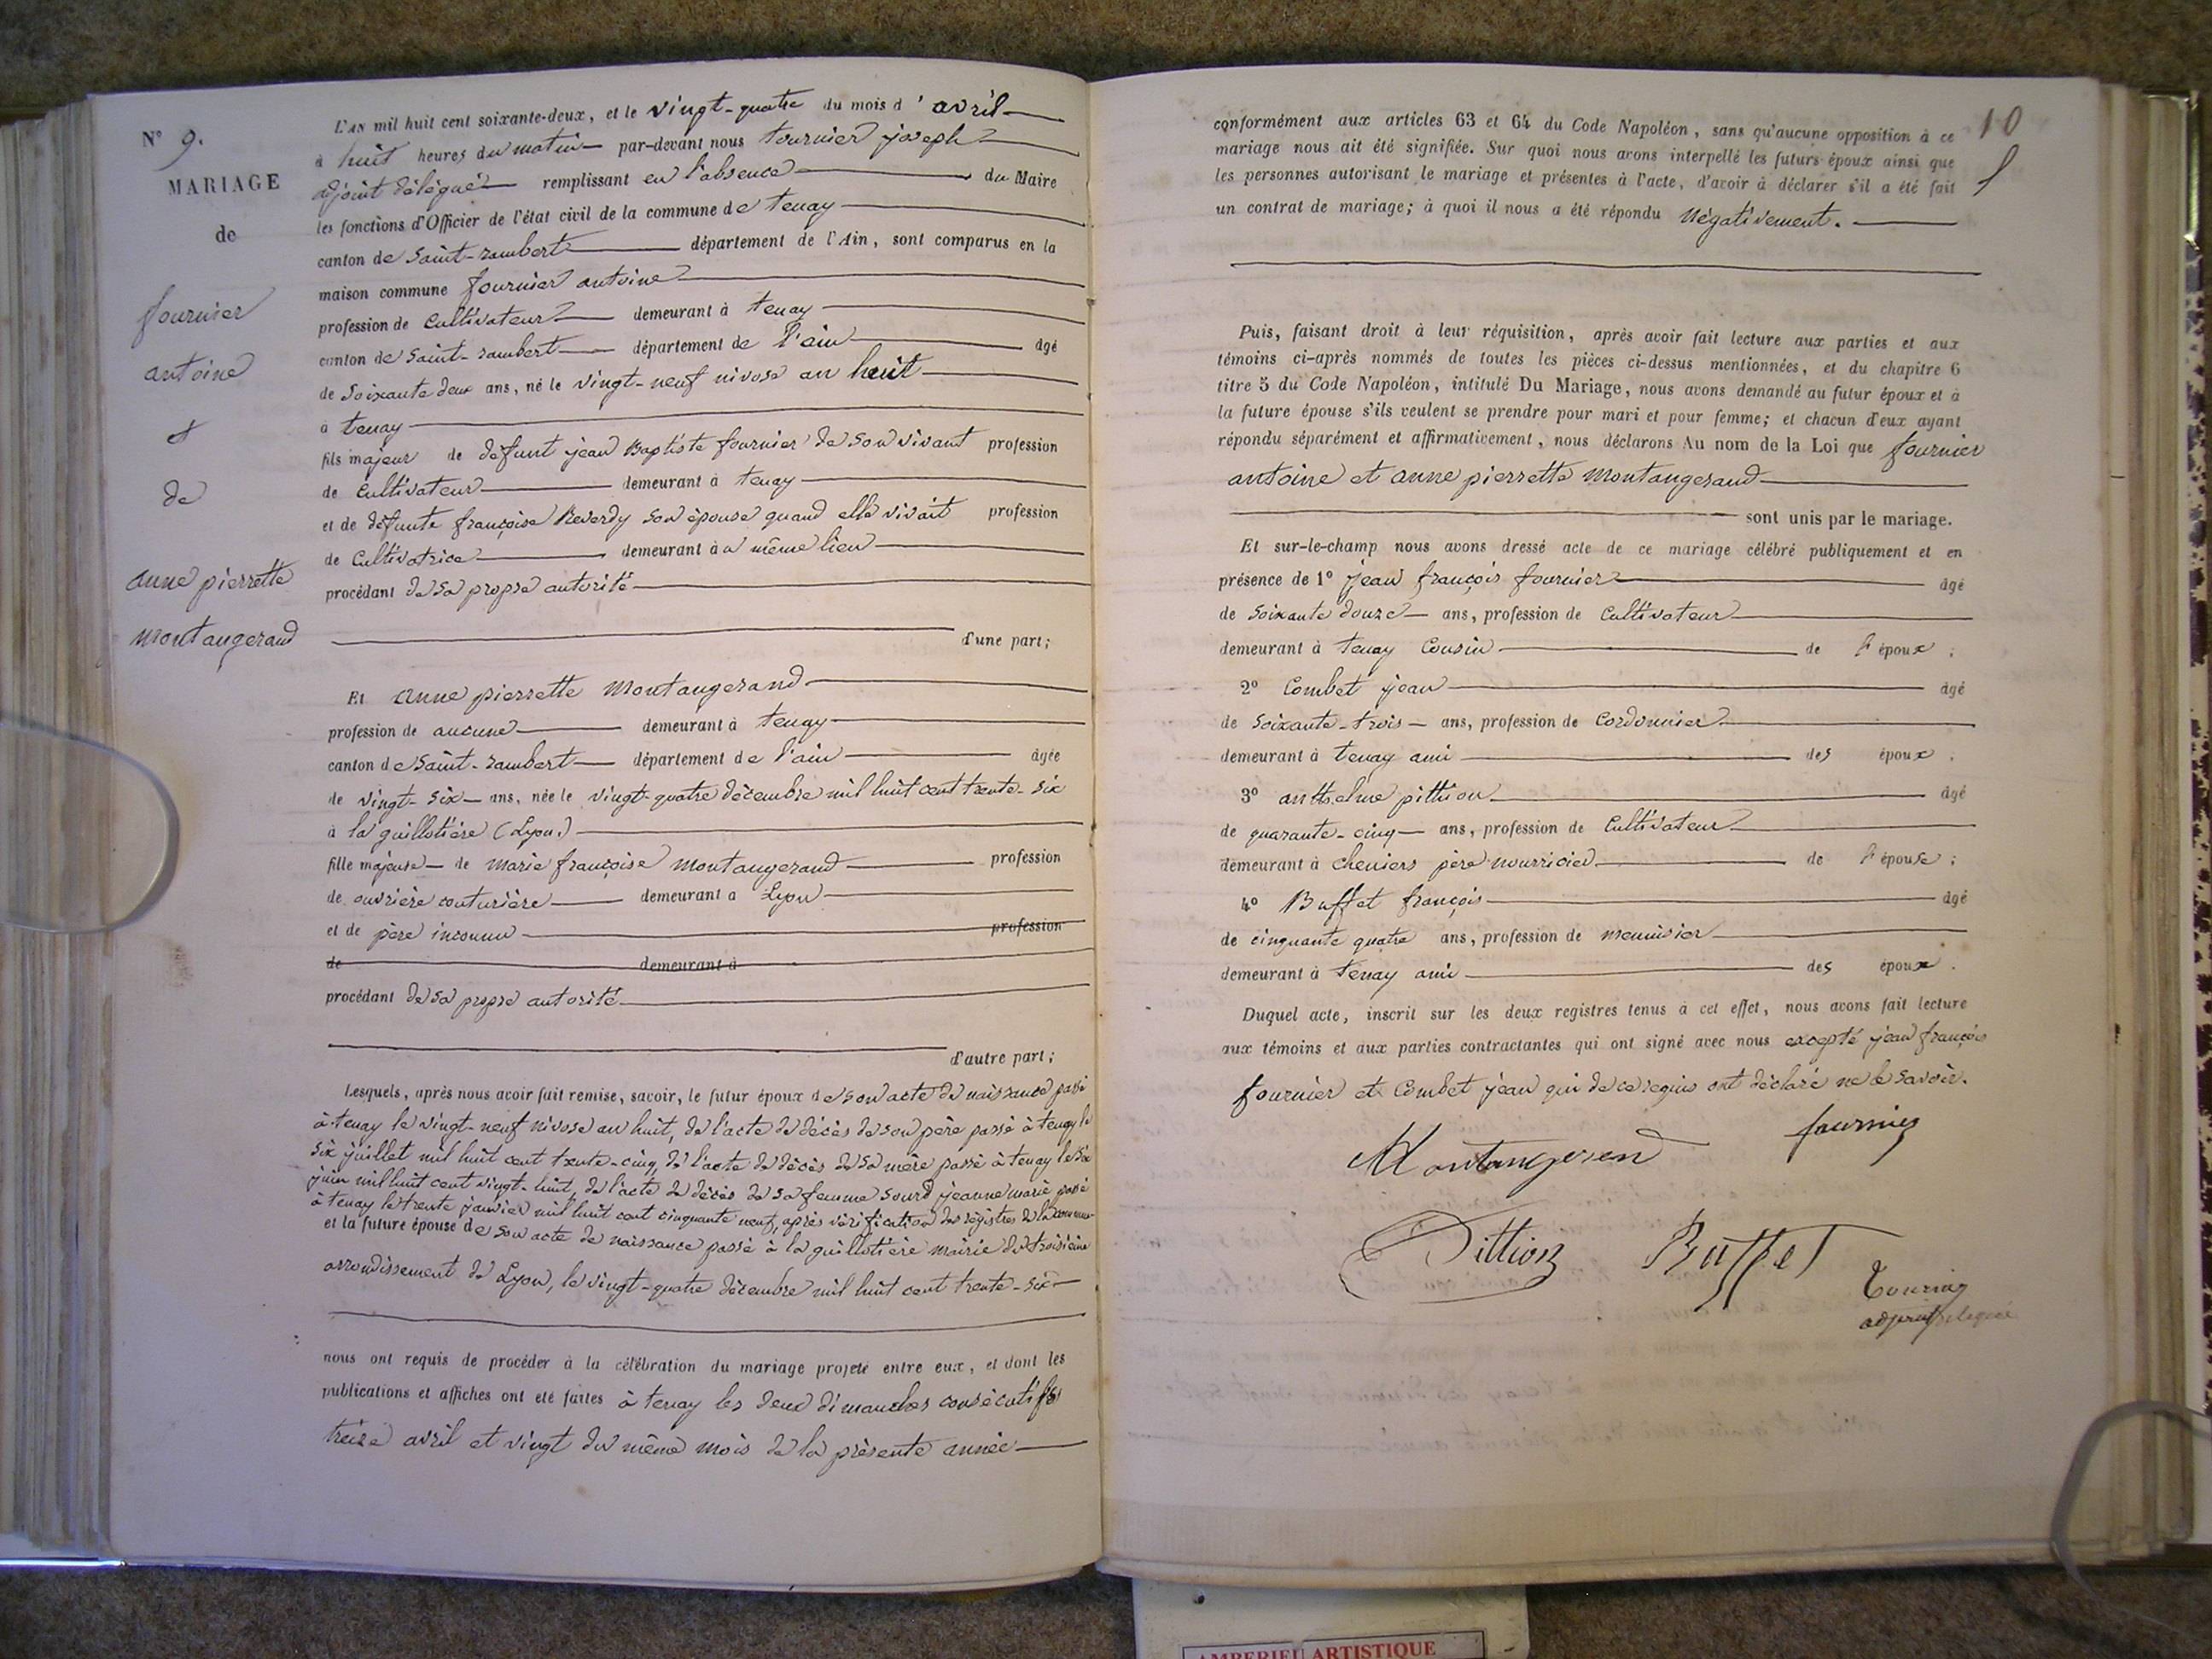 N° 9.
MARIAGE
de
fournier
antoine
et
de
anne pierrette
montangerand
L'AN mil huit cent soixante-deux, et le vingt-quatre du mois d'avril
à huit heures du matin par-devant nous tournier joseph
adjoint délégué remplissant en l'absence du Maire
les fonctions d'Officier de l'état civil de la commune de tenay
canton de Saint-rambert département de l'Ain, sont comparus en la
maison commune fournier antoine
profession de cultivateur demeurant à tenay
canton de saint-rambert département de l'ain âgé
de soixante deux ans, né le vingt-neuf nivose an huit
à tenay
fils majeur de défunt jean Baptiste fournier de son vivant profession
de cultivateur demeurant à tenay
et de défunte françoise Reverdy son épouse quand elle vivait profession
de Cultivatrice demeurant à u même lieu
procédant de sa propre autorité
d'une part;
Et anne pierrette montangerand
profession de aucune demeurant à tenay
canton de Saint-rambert département de l'ain âgée
de vingt-six ans, née le vingt-quatre décembre mil huit cent trente-six
à la guillotière (Lyon.)
fille majeure de marie françoise montangerand profession
de ouvrière couturière demeurant à Lyon
et de père inconnu profession
de demeurant à
procédant de sa propre autorité
d'autre part;
Lesquels, après nous avoir fait remise, savoir, le futur époux de son acte de naissance passé
à tenay le vingt-neuf nivose an huit, de l'acte de décès de son père passé à tenay le
six juillet mil huit cent trente-cinq, de l'acte de décès de sa mère passé à tenay le six
juin mil huit cent vingt-huit, de l'acte de décès de sa femme sourd jeanne marie passé
à tenay le trente janvier mil huit cent cinquante neuf, après vérification des régistres de la commune
et la future épouse de son acte de naissance passé à la guillotière mairie du troisième
arrondissement de Lyon, le vingt-quatre décembre mil huit cent trente-six
nous ont requis de procéder à la célébration du mariage projeté entre eux, et dont les
publications et affiches ont été faites à tenay les deux dimanches consécutifs
treize avril et vingt du même mois de la présente année
10
conformément aux articles 63 et 64 du Code Napoléon, sans qu'aucune opposition à ce
mariage nous ait été signifiée. Sur quoi nous avons interpellé les futurs époux ainsi que
les personnes autorisant le mariage et présentes à l'acte, d'avoir à déclarer s'il a été fait
un contrat de mariage; à quoi il nous a été répondu négativement.
Puis, faisant droit à leur réquisition, après avoir fait lecture aux parties et aux
témoins ci-après nommés de toutes les pièces ci-dessus mentionnées, et du chapitre 6
titre 5 du Code Napoléon, intitulé Du Mariage, nous avons demandé au futur époux et à
la future épouse s'ils veulent se prendre pour mari et pour femme; et chacun d'eux ayant
répondu séparément et affirmativement, nous déclarons Au nom de la Loi que fournier
antoine et anne pierrette montangerand
sont unis par le mariage.
Et sur-le-champ nous avons dressé acte de ce mariage célébré publiquement et en
présence de 1° jean françois fournier âgé
de soixante douze ans, profession de cultivateur
demeurant à tenay Cousin de l'époux;
2° Combet jean âgé
de soixante-trois ans, profession de cordonnier
demeurant à tenay ami des époux.
3° anthelme pittion âgé
de quarante-cinq ans, profession de cultivateur
demeurant à cheniers père nourricier de l'épouse;
4° Buffet françois âgé
de cinquante quatre ans, profession de menuisier
demeurant à tenay ami des époux.
Duquel acte, inscrit sur les deux registres tenus à cet effet, nous avons fait lecture
aux témoins et aux parties contractantes qui ont signé avec nous excepté jean françois
fournier et Combet jean qui de ce requis ont déclaré ne le savoir.
fournier
Montangerend
Pittion Buffet
Tournier
adjoint délégué
AMBERIEU ARTISTIQUE